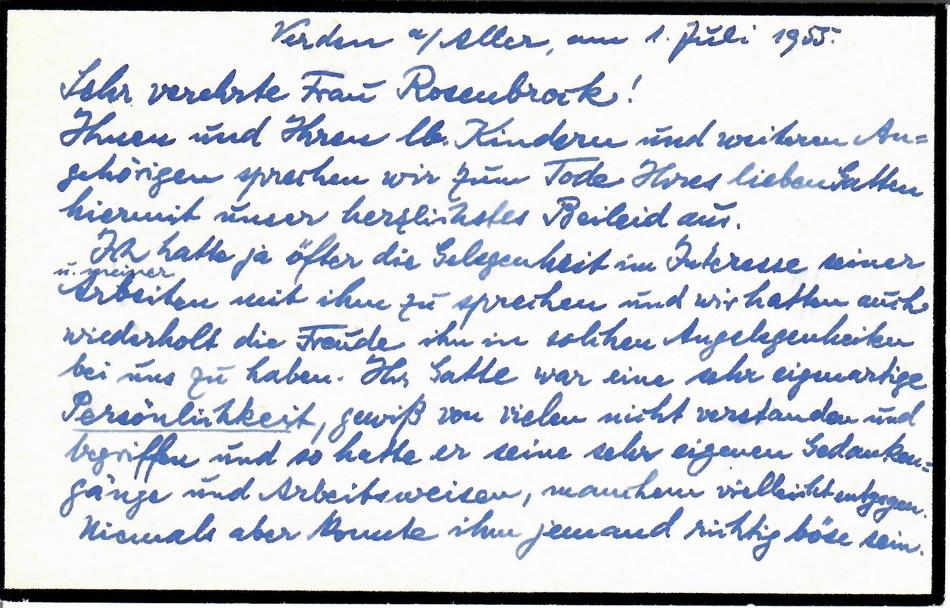 Verden a/Aller, am 1. Juli 1955.
Sehr verehrte Frau Rosenbrock!
Ihnen und Ihren lb. Kindern und weiteren An=
gehörigen sprechen wir zum Tode Ihres lieben Gatten
hiermit unser herzlichstes Beileid aus.
Ich hatte ja öfter die Gelegenheit im Interesse seiner
u. meiner
Arbeiten mit ihm zu sprechen und wir hatten auch
wiederholt die Freude ihn in solchen Angelegenheiten
bei uns zu haben. Ihr Gatte war eine sehr eigenartige
Persönlichkeit, gewiß von vielen nicht verstanden und
begriffen und so hatte er seine sehr eigenen Gedanken=
gänge und Arbeitsweisen, manchem vielleicht entgegen.
Niemals aber konnte ihm jemand richtig böse sein.